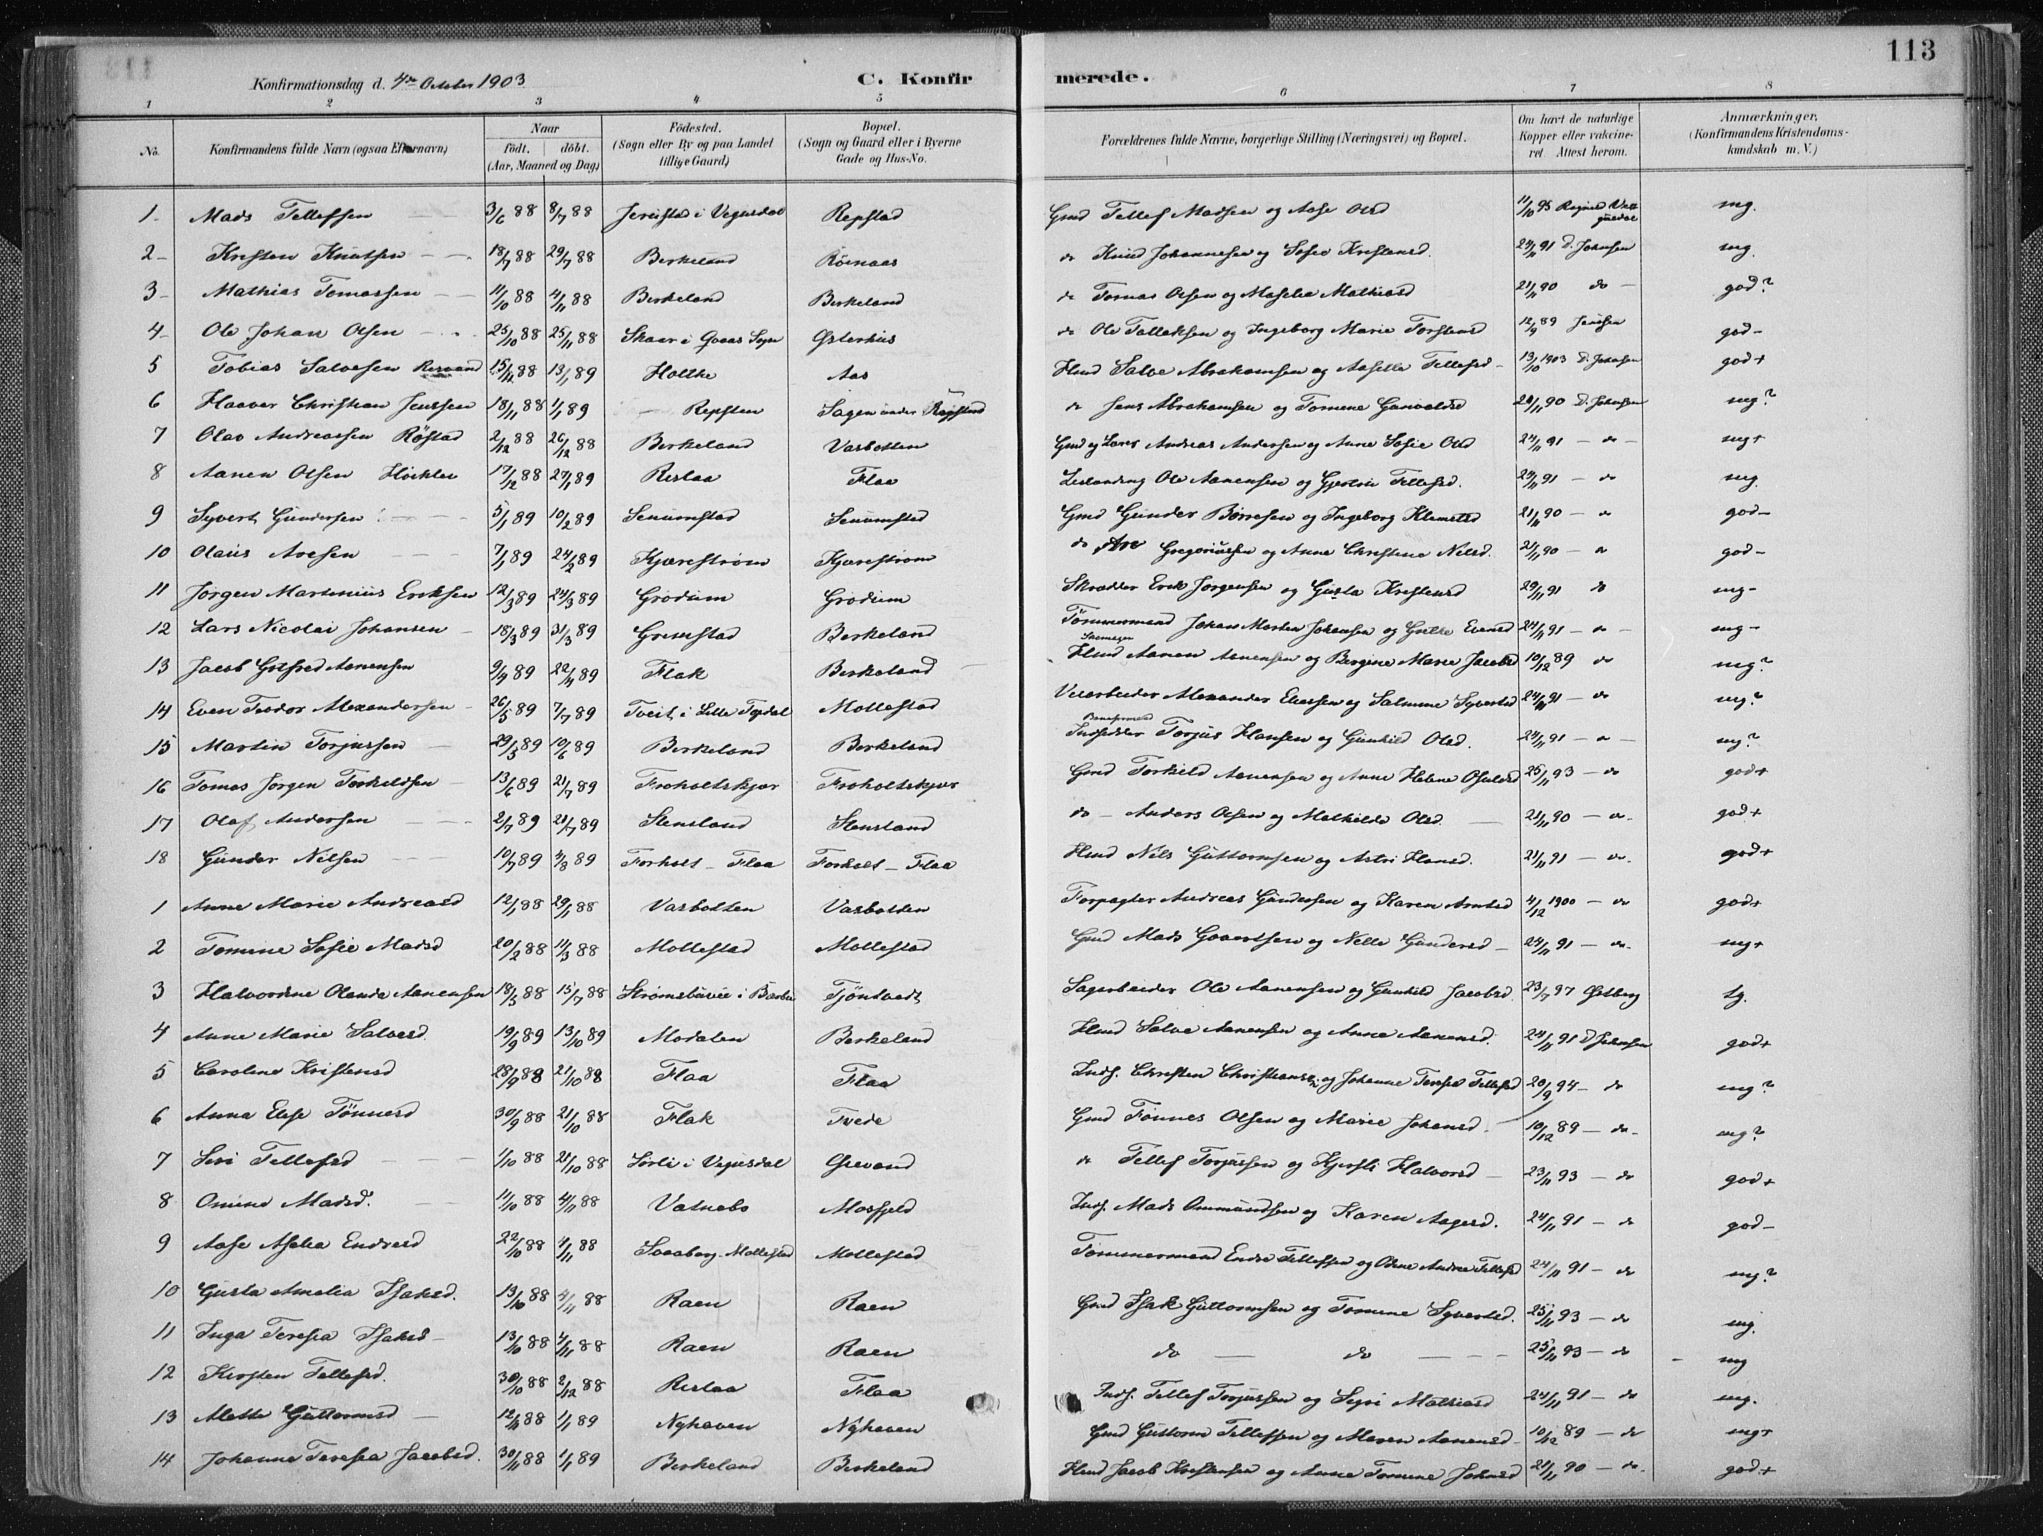 113
Konfirmationsdag d. 4de October 1903 C. Konfirmerede.
1 2 3 4 5 6 7 8
No. Konfirmandens fulde Navn (ogsaa Efternavn) Naar født. døbt. (Aar, Maaned og Dag) Fødested. (Sogn eller By og paa Landet tillige Gaard) Bopæl. (Sogn og Gaard eller i Byerne Gade og Hus-No. Forældrenes fulde Navne, borgerlige Stilling (Næringsvei) og Bopæl. Om havt de naturlige Kopper eller vakcineret Attest herom. Anmærkninger. (Konfirmandens Kristendomskundskab m. V.)
1 Mads Tellefsen 3/6 88 8/7 88 i Vegusdal Repstad Gmd Tellef Madsen og Aase Olsd 11/10 95 mg.
2 Kristen Knutsen 18/7 88 29/7 88 Birkeland Røinaas do Knud Johannesen og Sofie Kristensd. 24/11 91 D. Johnsen mg
3 Mathias Tomassen 11/10 88 4/11 88 Birkeland Birkeland do Tomas Olsen og Maselia Mathiasd 21/11 90 do god?
4 Ole Johan Olsen 25/10 88 25/11 88 Skaar i Sogn Østerhus do Ole Tallaksen og Ingeborg Marie Torstensd 12/9 89 Jensen god-
5 Tobias Salvesen 15/12 88 13/1 89 Holtke Aas Hmd Salve Abrahamsen og Aaselle Tellefsd 13/10 1903 D. Johnsen god+
6 Haaver Christian Jenssen 18/11 88 1/1 89 Repsten Sagen under Repstad do Jens Abrahamsen og Tomine Gunvaldsd 21/11 90 D. Johnsen mg?
7 Olav Andreassen Røstad 2/12 88 26/12 88 Birkeland Vasbotten Gmd og Andreas Andersen og Anne Sofie Olsd 24/11 91 do mg+
8 Aanen Olsen 17/12 88 27/1 89 Rislaa Flaa Ole Aanensen og Tellefsd. 24/11 91 do mg.
9 Syvert Gundersen 5/1 89 10/2 89 Senumstad Senumstad Gmd Gunder Børresen og Ingeborg Klemetsd 21/11 90 do god-
10 Olaus Avesen 7/1 89 24/2 89 Kjærestrøm Kjærestrøm do Ave Gregoriussen og Anne Christine Nilsd. 21/11 90 do god-
11 Jørgen Martinius Eriksen 12/3 89 24/3 89 Grødum Grødum Skrædder Erik Jørgensen og Gusta Kristensd 29/11 91 do mg-
12 Lars Nicolai Johansen 18/3 89 31/3 89 Grimstad Birkeland Tømmermand Johan Martin Johansen og Grethe Evensd 24/11 91 do mg-
13 Jacob Gotfred Aanensen 9/4 89 22/4 89 Flak Birkeland Hmd Aanen Aanensen og Bergine Marie Jacobsd 10/12 89 do mg?
14 Even Teodor Alexandersen 26/5 89 7/7 89 Tveit i Lille Topdal Mollestad Veiarbeider Alexander Eliassen og Salmine Syvertsd 24/11 91 do mg?
15 Martin Torjussen 29/3 89 10/6 89 Birkeland Birkeland Indsidder Torjus Hansen og Gunhild Olsd. 24/11 91 do mg?
16 Tomas Jørgen Torkildsen 13/6 89 21/7 89 Froholtskjær Froholtskjær Gmd Torkild Aanensen og Anne Helene Osuldsd 25/11 93 do god+
17 Olaf Andersen 2/7 89 21/7 89 Stensland Stensland do Anders Olsen og Mathilde Olsd. 21/11 90 do god+
18 Gunder Nilsen 10/7 89 4/8 89 Forholt - Flaa Forholt - Flaa Hmd Nils Guttormsen og Astri Hansd. 21/11 91 do god+
1 Anne Marie Andreasd 12/1 88 29/1 88 Vasbotten Vasbotten Forpagter Andreas Gundersen og Karen Arntsd 4/12 1900 do god+
2 Tomine Sofie Madsd 20/2 88 11/3 88 Mollestad Mollestad Gmd Mads Govertsen og Nelle Gundersd 24/11 91 do mg+
3 Halvordine Olande Aanensen 18/5 88 15/7 88 Strømsbuvie i Barbu Tjøntvedt Sagarbeider Ole Aanensen og Gunhild Jacobsd 23/7 97 Ostberg tg.
4 Anne Marie Salvesd 19/9 89 13/10 89 Modalen Birkeland Hmd Salve Aanensen og Anne Aanensd. 24/11 91 D Johnsen god+
5 Caroline Kristensd 28/9 88 21/10 88 Flaa Flaa Inds. Christen Christiansen og Johanne Teresie Tellefsd 20/9 94 do mg?
6 Anna Elise Tønnesd 30/9 88 21/10 88 Flak Tvede Gmd Tønnes Olsen og Marie Johansd 10/12 89 do mg?
7 Siri Tellefsd 1/10 88 21/10 88 Sørli i Vegusdal Grevand do Tellef Torjussen og Kjersti Halvorsd 23/11 93 do god+
8 Omine Madsd. 11/10 88 4/11 88 Vatnebo Mosfjeld Inds. Mads Ommundsen og Karen Aagesd. 24/11 91 do god-
9 Aase Aselia Endresd 22/10 88 4/11 88 Svaaberg-Mollestad Mollestad Tømmermand Endre Tellefsen og Odine Andrea Tellefsd 24/11 91 do mg?
10 Gusta Amalia Isaksd. 13/10 88 4/11 88 Raen Raen Gmd Isak Guttormsen og Tomine Syvertsd. 25/11 93 do mg.
11 Inga Teresia Isaksd 13/10 88 4/11 88 Raen Raen do do 25/11 93 do mg
12 Kirsten Tellefsd. 30/10 88 2/12 88 Rislaa Flaa Inds. Tellef Torjussen og Siri Mathiasd 24/11 91 do mg.
13 Alette Guttormsd 12/11 88 1/1 89 Nyhaven Nyhaven Gmd Guttorm Tellefsen og Maren Aanensd 10/12 89 do mg+
14 Johanne Teresia Jacobsd. 30/11 88 1/1 89 Birkeland Birkeland Hmd Jacob Kristensen og Anne Tomine Johnsd 21/11 90 do god+